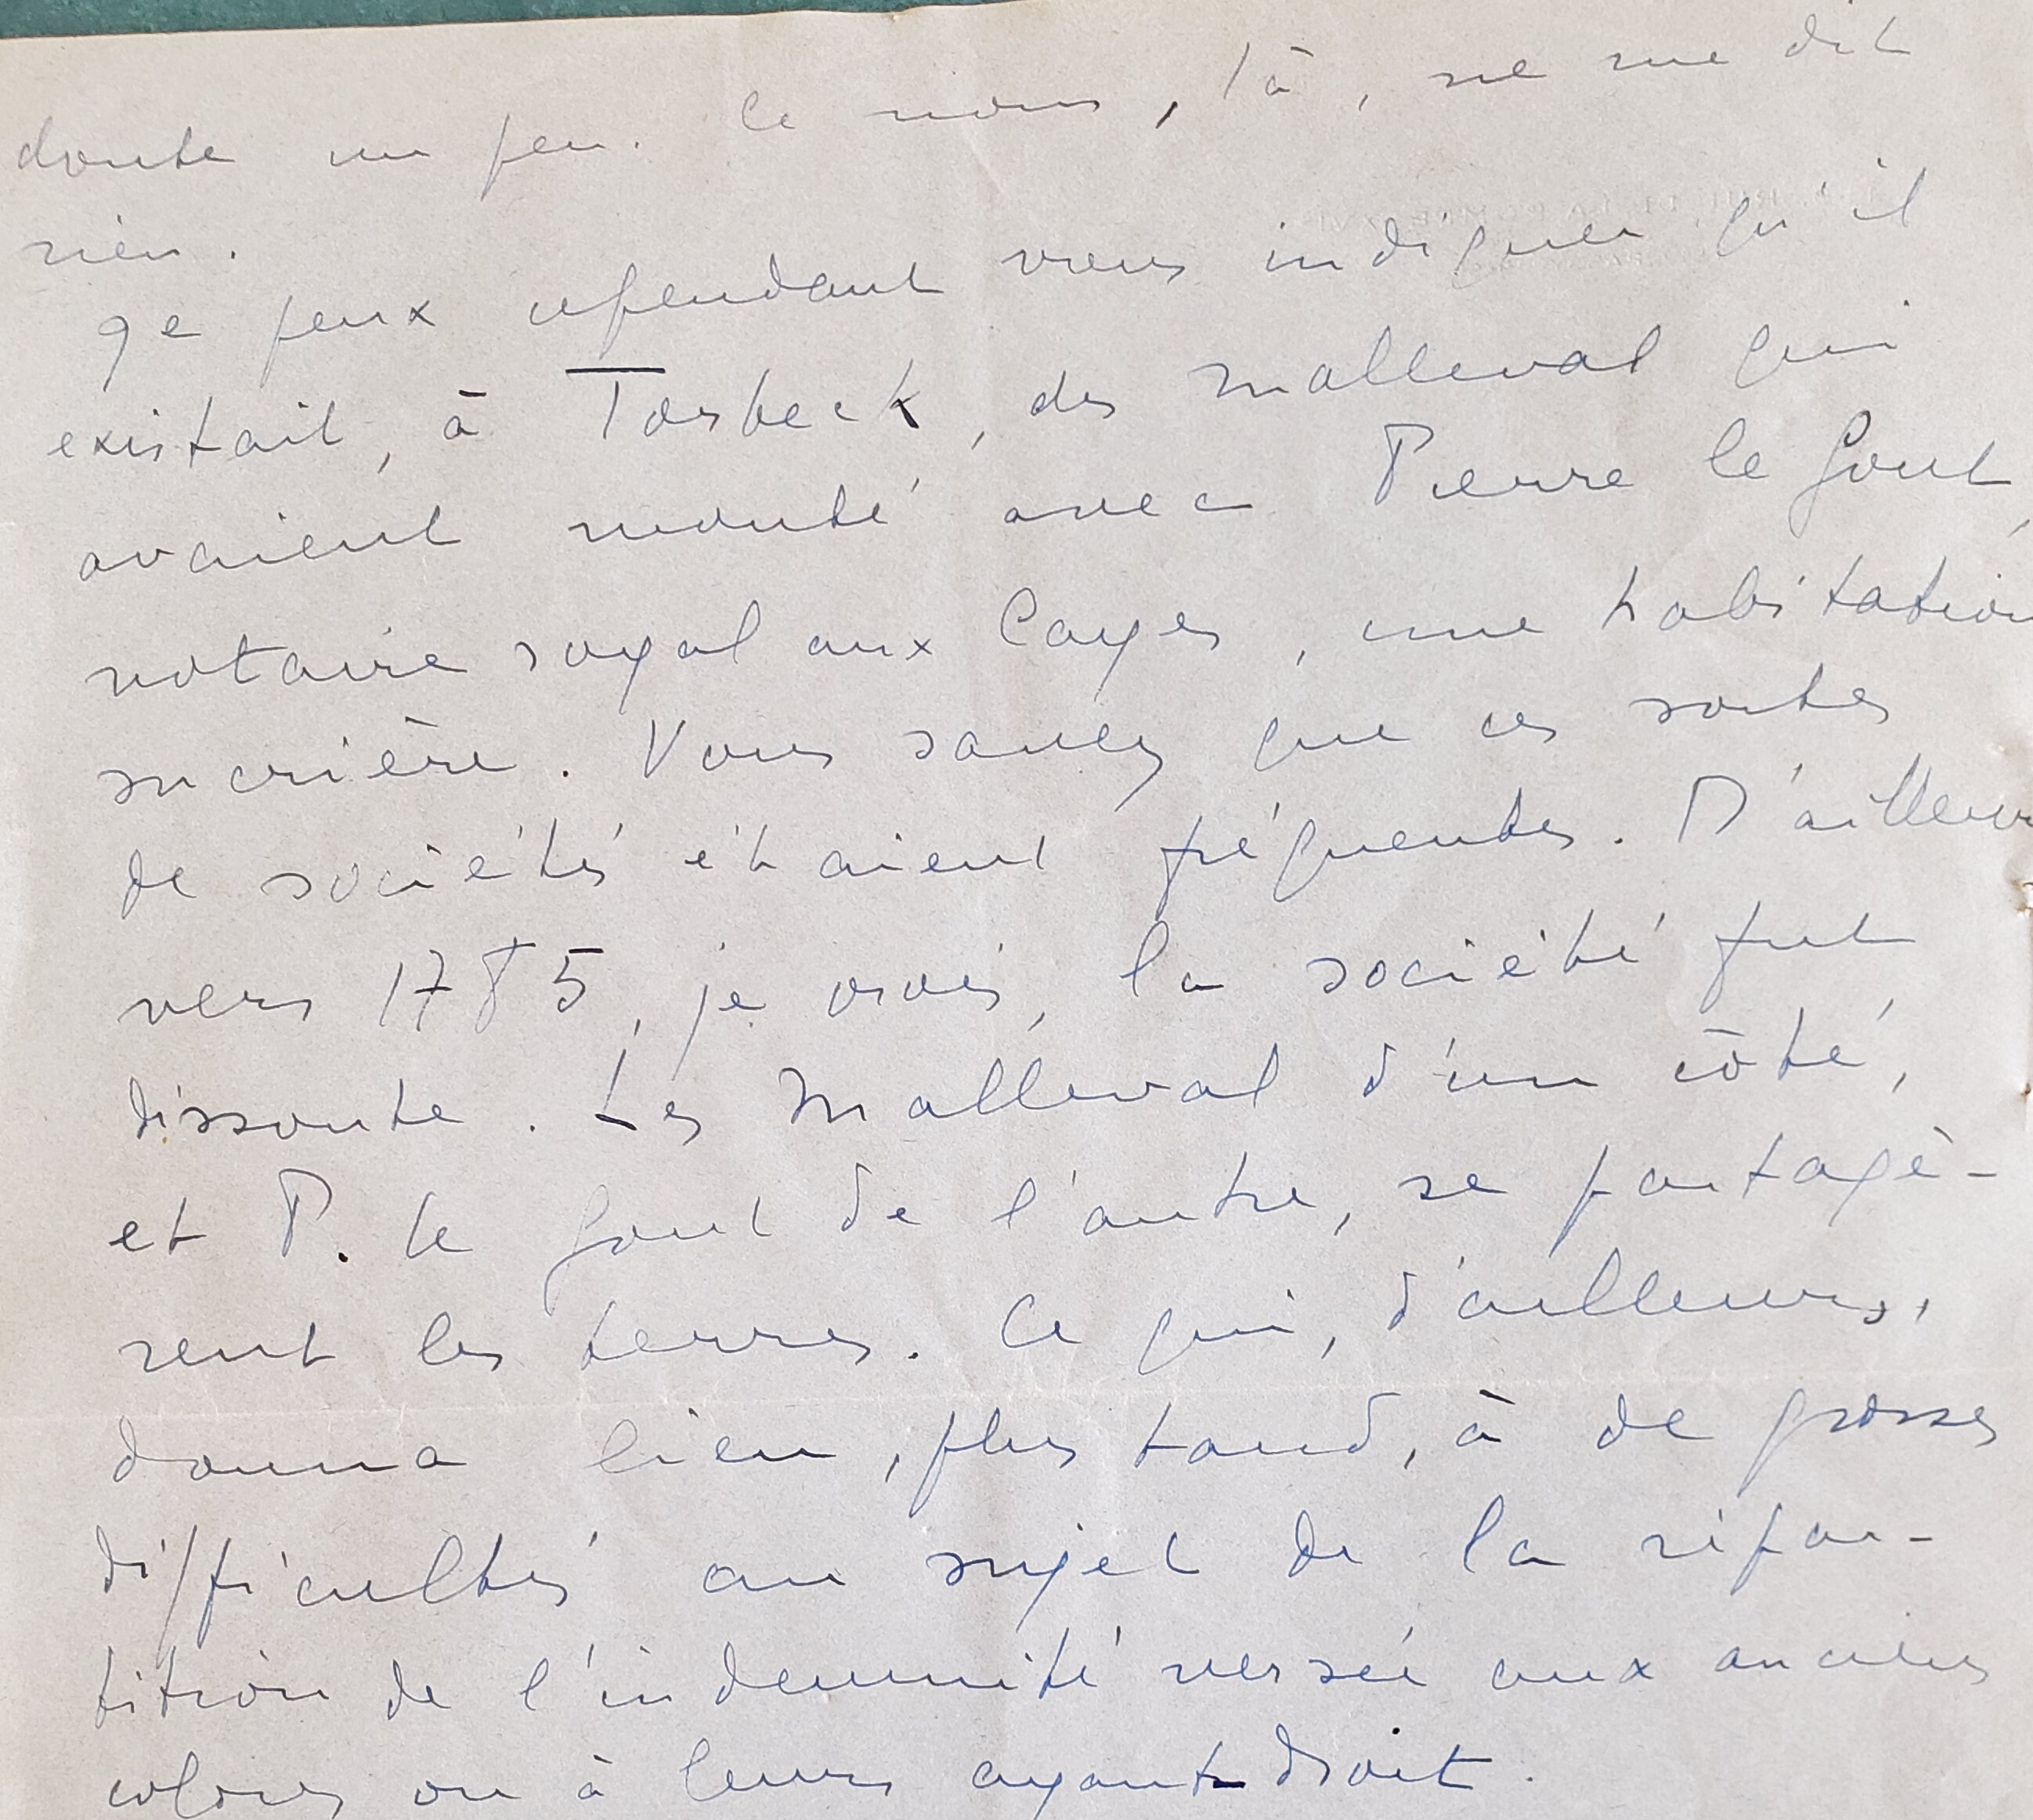 doute un peu. Ce nom, là, ne me dit
rien.
Je peux cependant vous indiquer qu'il
existait, à Torbeck, des Malleval qui
avaient monté avec Pierre le Gout,
notaire royal aux Cayes, une habitation
sucrière. Vous savez que ces sortes
de sociétés étaient fréquentes. D'ailleurs
vers 1785, je crois, la société fut
dissoute. Les Malleval d'un côté,
et P. le Gout de l'autre, se partagè-
rent les terres. Ce qui, d'ailleurs,
donna lieu, plus tard, à de grosses
difficultés au sujet de la répar-
tition de l'indemnité versée aux anciens
colons ou à leurs ayant droit.